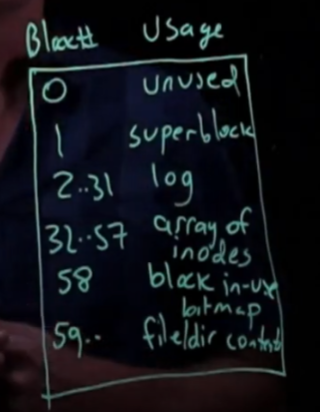 Block# Usage
0 unused
1 superblock
2..31 log
32..57 array of
inodes
58 block in-use
bitmap
59.. file/dir content